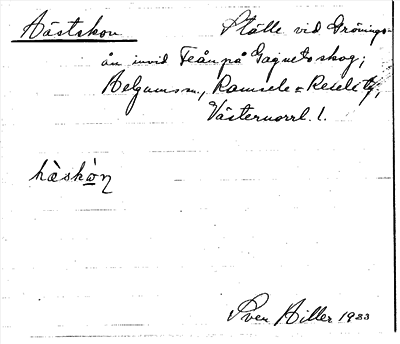 Hästskon Ställe vid Grönings-
ån invid Teån på Gagnets skog;
Helgums sn, Ramsele o Resele tg,
Västernorrl. l.
hàskòn
Sven Hiller 1933